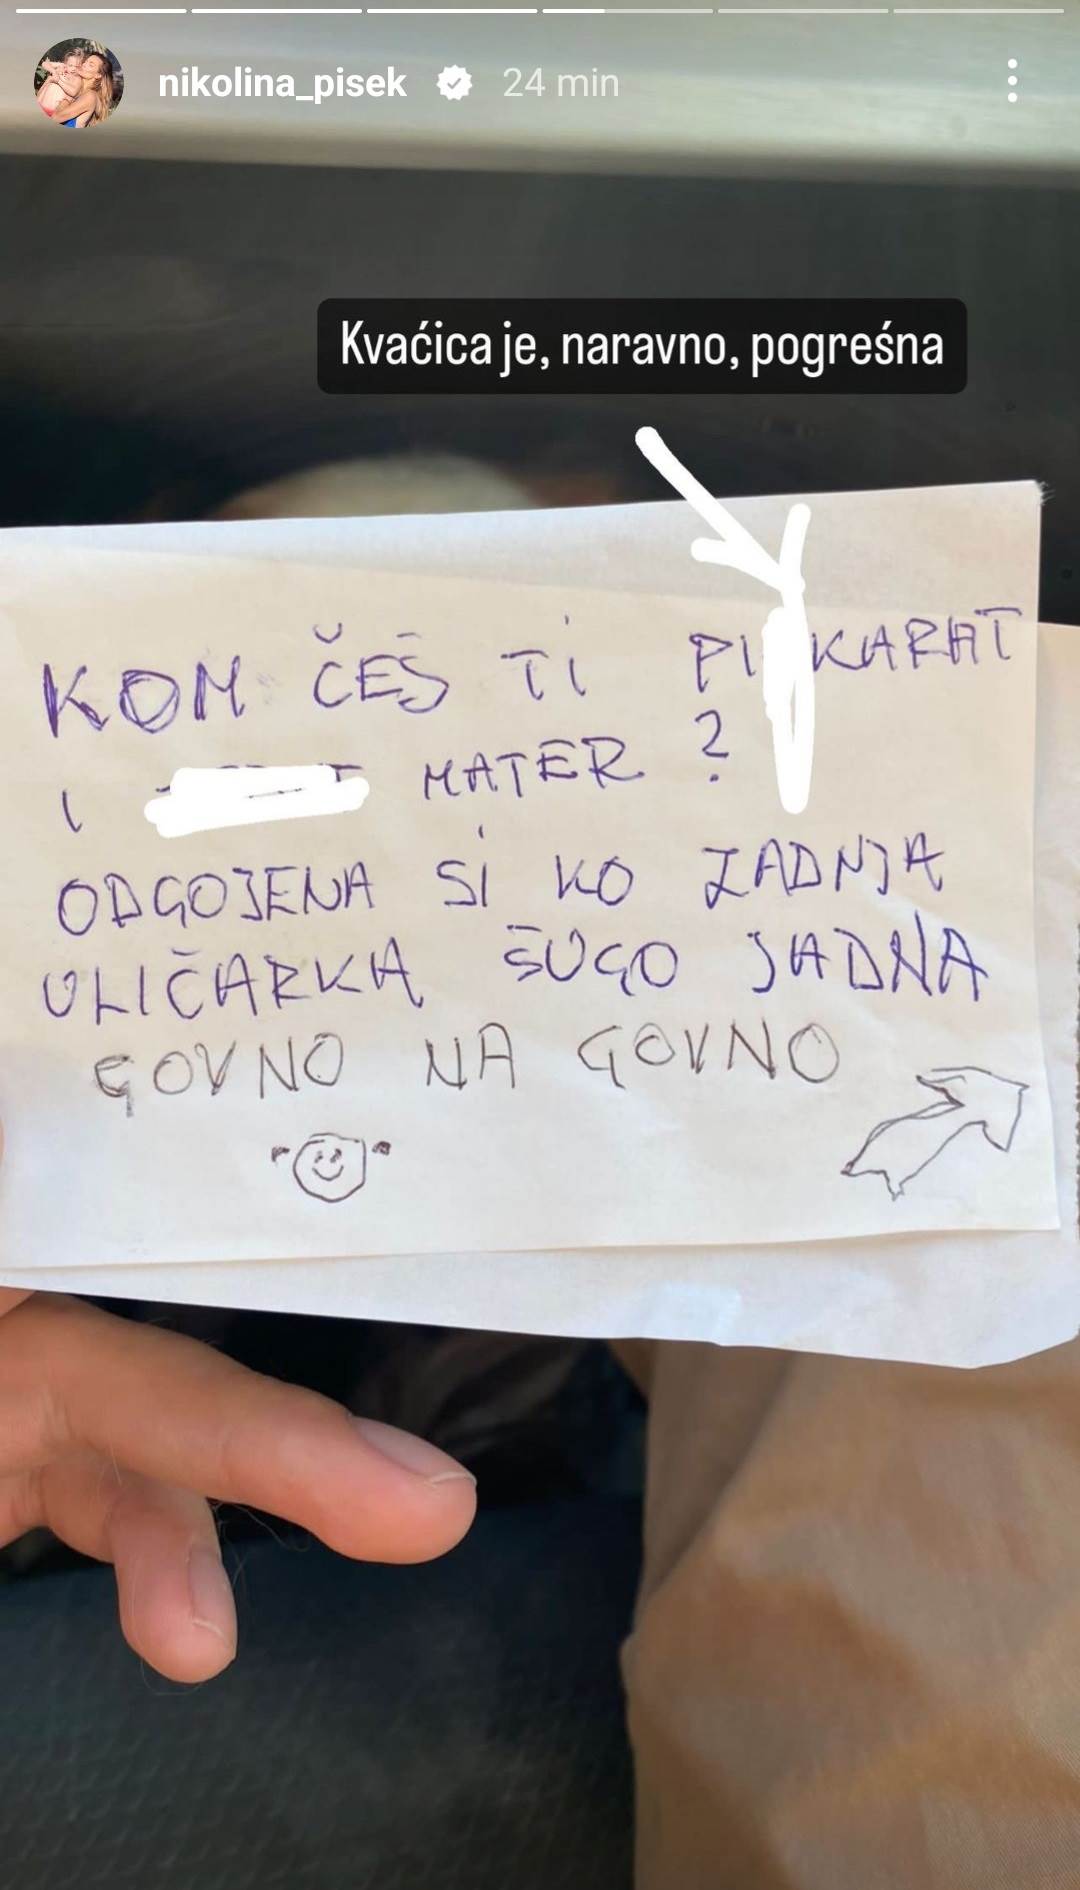 nikolina_pisek 24 min
Kvaćica je, naravno, pogreśna
KOM ČEŠ TI PI KARAT
I MATER ?
ODGOJENA SI KO ZADNJA
ULIČARKA ŠUGO JADNA
GOVNO NA GOVNO